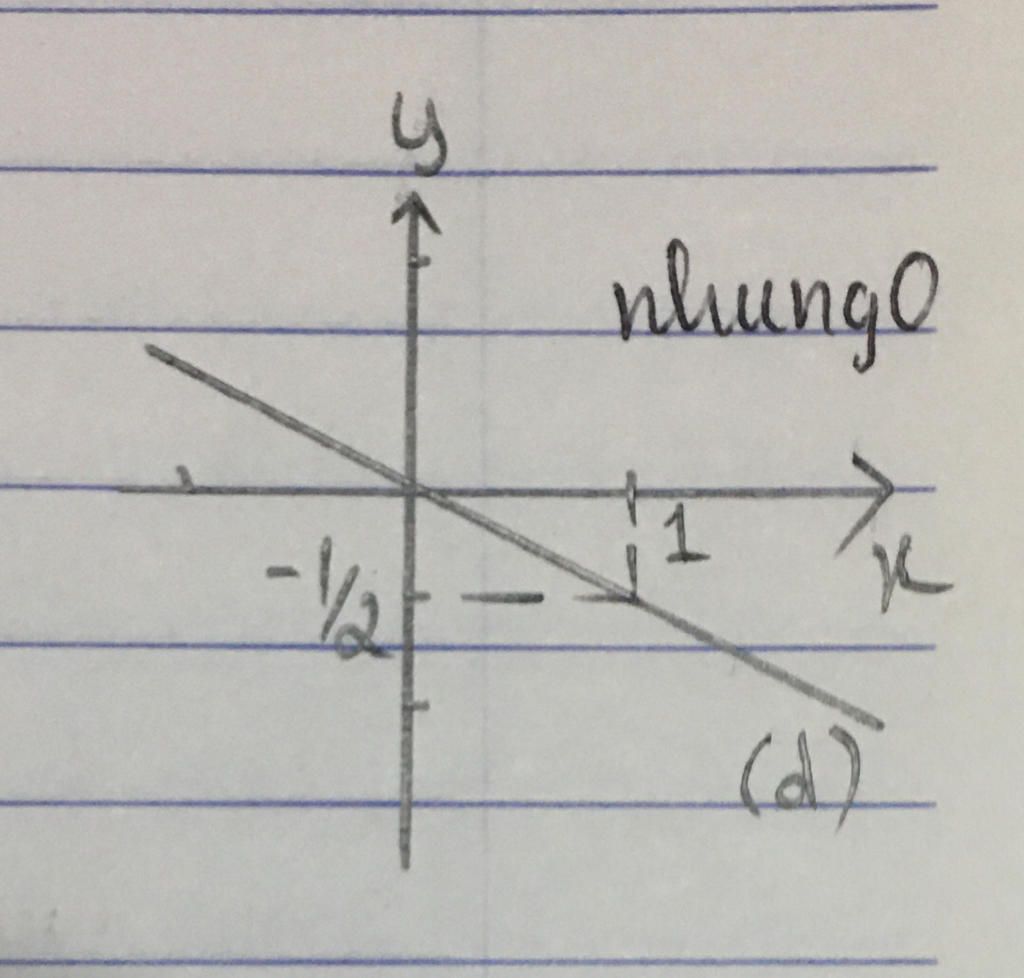 y
nhung0
1
x
-1/2
(d)